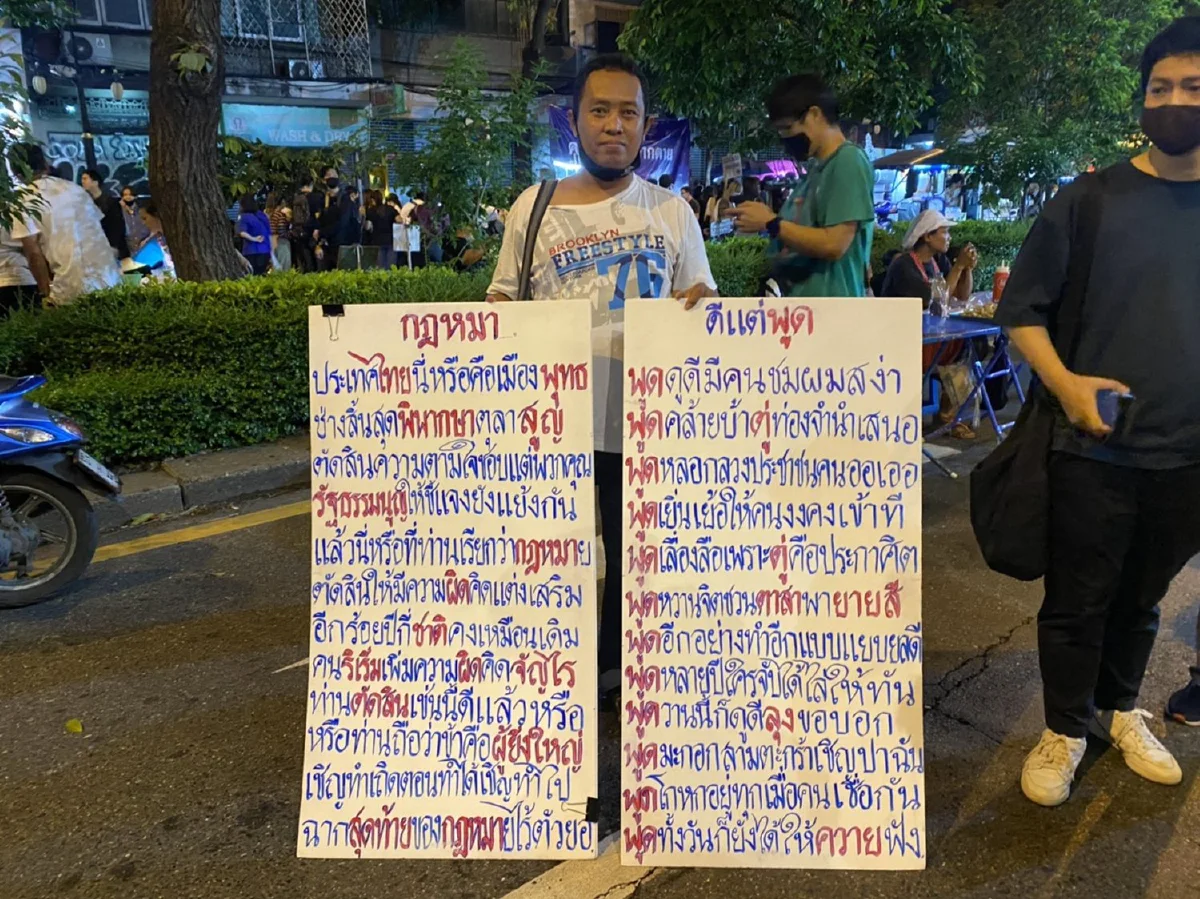 WASH & DRY
BROOKLYN
FREESTYLE
76
กฎหมา
ประเทศไทยนี่หรือคือเมืองพุทธ
ช่างสิ้นสุดพิพากษาตุลาสูญ
ตัดสินความตามใจชอบแต่พวกคุณ
รัฐธรรมนูญให้ชี้แจงยังแย้งกัน
แล้วนี่หรือที่ท่านเรียกว่ากฎหมาย
ตัดสินให้มีความผิดคิดแต่งเสริม
อีกร้อยปีกี่ชาติคงเหมือนเดิม
คนริเริ่มเพิ่มความผิดคิดจัญไร
ท่านตัดสินเช่นนี้ดีแล้วหรือ
หรือท่านถือว่าข้าคือผู้ยิ่งใหญ่
เชิญทำเถิดตอนทำได้เชิญทำไป
ฉากสุดท้ายของกฎหมายไร้ตัวยอ
ดีแต่พูด
พูดดูดีมีคนชมผมสง่า
พูดคล้ายบ้าตู่ท่องจำนำเสนอ
พูดหลอกลวงประชาชนคนออเออ
พูดเยิ่นเย้อให้คนงงคงเข้าที
พูดเลื่องลือเพราะตู่คือประกาศิต
พูดหวานจิตชวนตาสาพายายสี
พูดอีกอย่างทำอีกแบบแยบยลดี
พูดหลายปีใครจับได้ไล่ให้ทัน
พูดวานนี้ก็ดูดีลุงขอบอก
พูดมะกอกสามตะกร้าเชิญปาฉัน
พูดโกหกอยู่ทุกเมื่อคนเชื่อกัน
พูดทั้งวันก็ยังได้ให้ควายฟัง